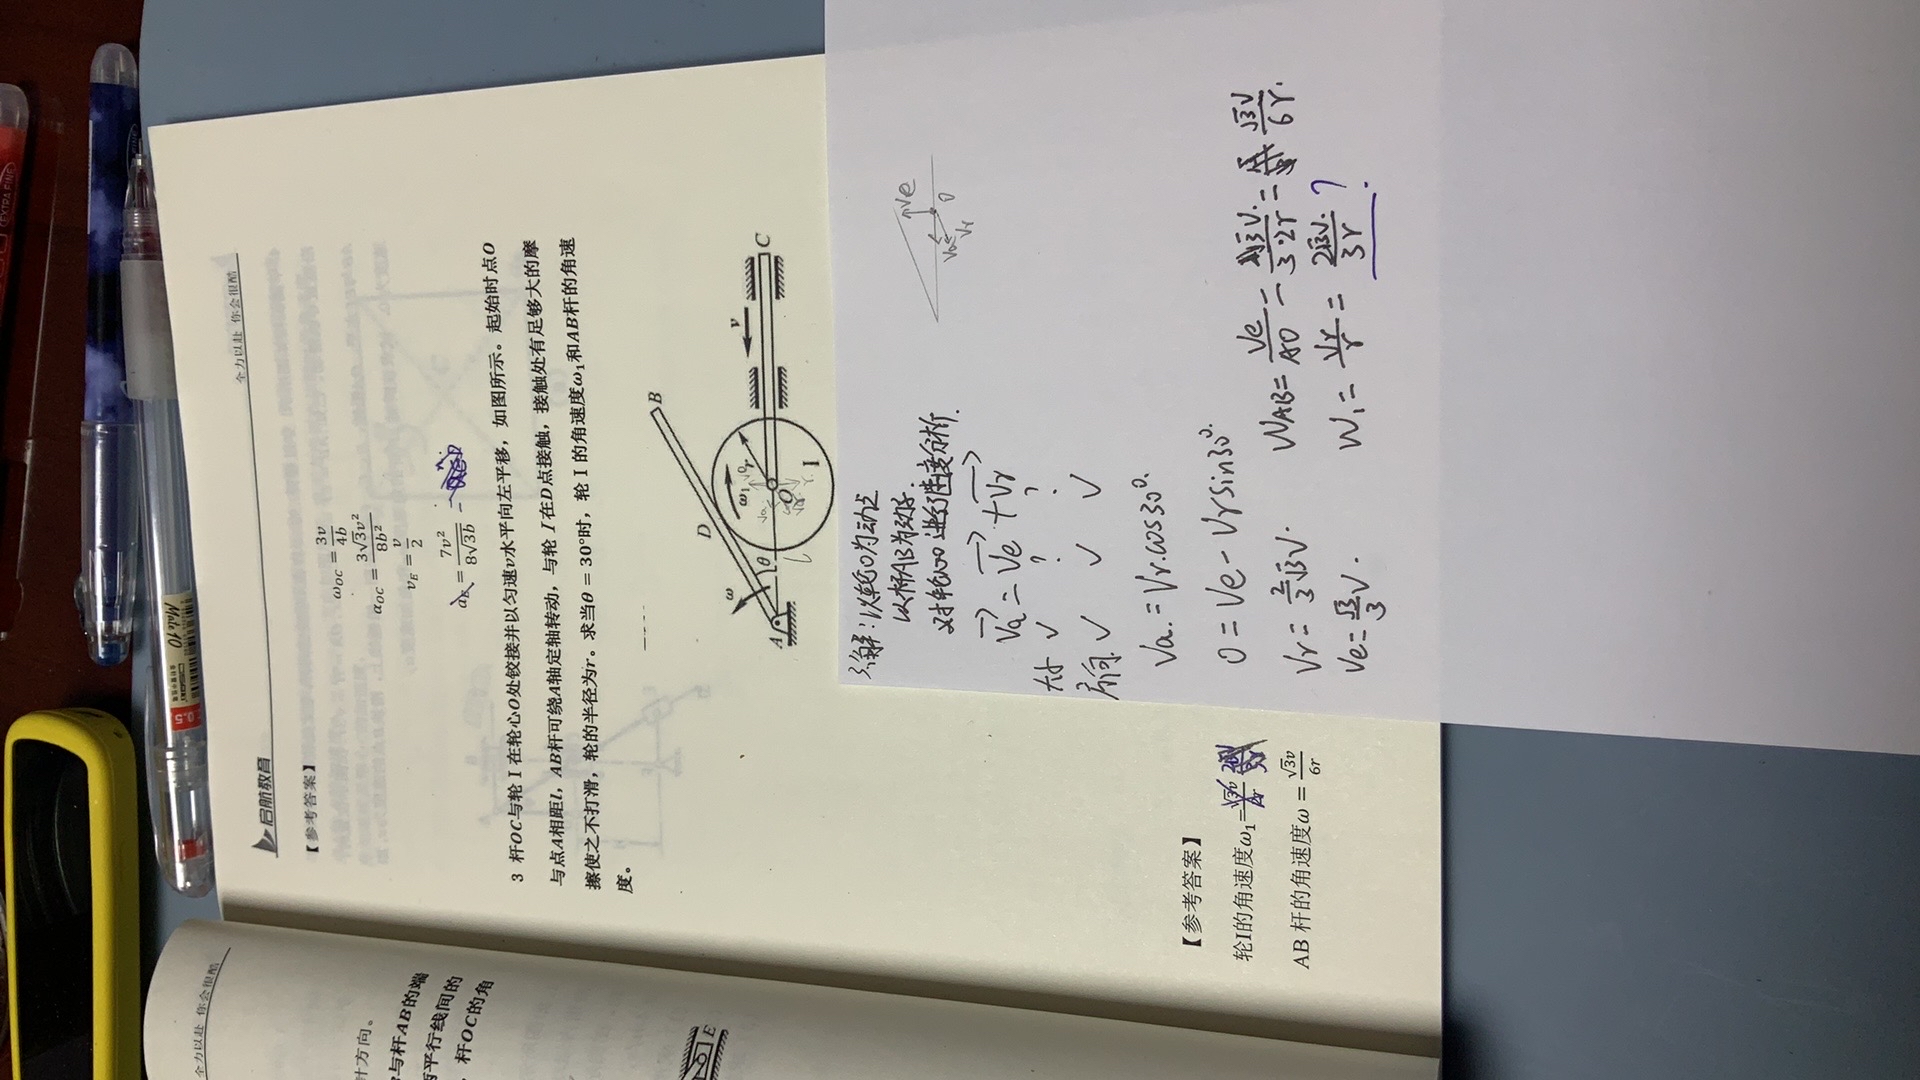 全力以赴 你会很酷
启航教育
【参考答案】
ω_OC = 3v/4b
α_OC = 3√3v²/8b²
v_E = v/2
a_E = 7v²/8√3b
3 杆OC与轮 I 在轮心O处铰接并以匀速v水平向左平移，如图所示。起始时点O
与点A相距l，AB杆可绕A轴定轴转动，与轮 I 在D点接触，接触处有足够大的摩
擦使之不打滑，轮的半径为r。求当θ = 30°时，轮 I 的角速度ω₁和AB杆的角速
度。
B
D
ω
ω₁
r
v
C
A
θ
O
I
l
【参考答案】
轮I的角速度ω₁=
AB 杆的角速度ω = √3v/6r
3解：以轮O为动点
以杆AB为动系.
对轮O进行速度分析.
Va = Ve + Vr
大小 √ ? ?
方向. √ √ √
Va = Vr.cos30°.
0 = Ve - Vrsin30°.
Vr = 2/3√3V.
Ve = √3/3V.
W_AB = Ve/AO = √3V./3·2r = √3V/6r.
W₁ = Vr/r = 2√3V./3r ?
Ve
Va
Vr
O
全力以赴 你会很酷
针方向。
与杆AB的端
两平行线间的
杆OC的角
E
EXTRA FINE
Mate10
0.5